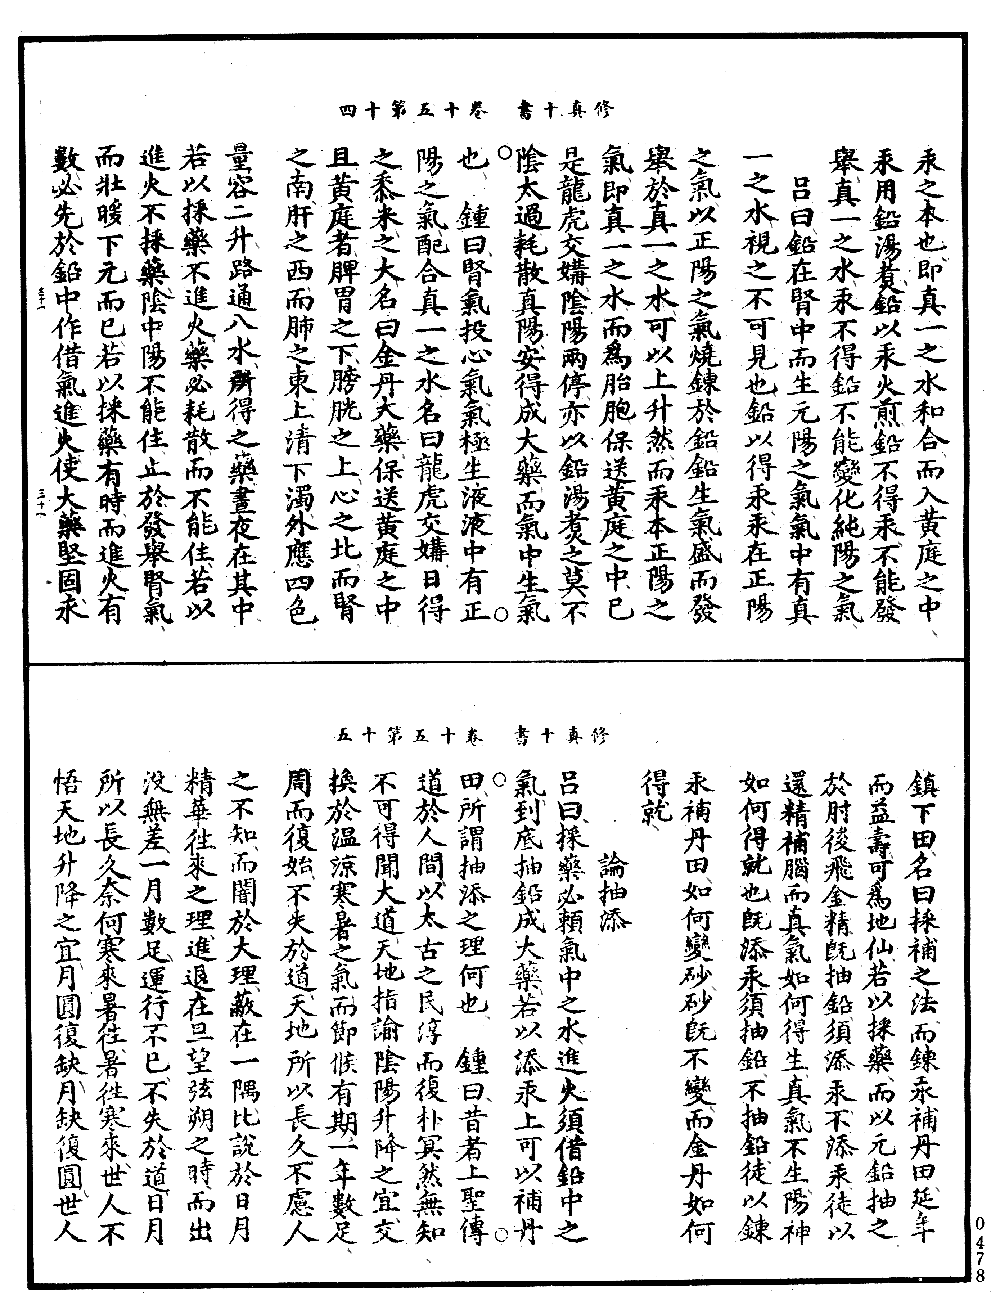 修真十書　卷十五第十四
汞之本也即真一之水和合而入黃庭之中
汞用鉛湯煑鉛以汞火煎鉛不得汞不能發
舉真一之水汞不得鉛不能變化純陽之氣
呂曰鉛在腎中而生元陽之氣氣中有真
一之水視之不可見也鉛以得汞汞在正陽
之氣以正陽之氣燒鍊於鉛鉛生氣盛而發
舉於真一之水可以上升然而汞本正陽之
氣即真一之水而爲胎胞保送黃庭之中已
是龍虎交媾陰陽兩停亦以鉛湯煑之莫不
陰太過耗散真陽安得成大藥而氣中生氣
也　鍾曰腎氣投心氣氣極生液液中有正
陽之氣配合真一之水名曰龍虎交媾日得
之黍米之大名曰金丹大藥保送黃庭之中
且黃庭者脾胃之下膀胱之上心之北而腎
之南肝之西而肺之東上清下濁外應四色
量容二升路通八水所得之藥晝夜在其中
若以採藥不進火藥必耗散而不能住若以
進火不採藥陰中陽不能住止於發舉腎氣
而壯暖下元而已若以採藥有時而進火有
數必先於鉛中作借氣進火使大藥堅固永
修真十書　卷十五第十五
鎮下田名曰採補之法而鍊汞補丹田延年
而益壽可爲地仙若以採藥而以元鉛抽之
於肘後飛金精既抽鉛須添汞不添汞徒以
還精補腦而真氣如何得生真氣不生陽神
如何得就也既添汞須抽鉛不抽鉛徒以鍊
汞補丹田如何變砂砂既不變而金丹如何
得就
論抽添
呂曰採藥必賴氣中之水進火須借鉛中之
氣到底抽鉛成大藥若以添汞上可以補丹
田所謂抽添之理何也　鍾曰昔者上聖傳
道於人間以太古之民淳而復朴冥然無知
不可得聞大道天地指諭陰陽升降之宜交
換於温涼寒暑之氣而節候有期一年數足
周而復始不失於道天地所以長久不慮人
之不知而闇於大理蔽在一隅比說於日月
精華徃來之理進退在旦望弦朔之時而出
没無差一月數足運行不已不失於道日月
所以長久奈何寒來暑徃暑徃寒來世人不
悟天地升降之宜月圓復缺月缺復圓世人
0478